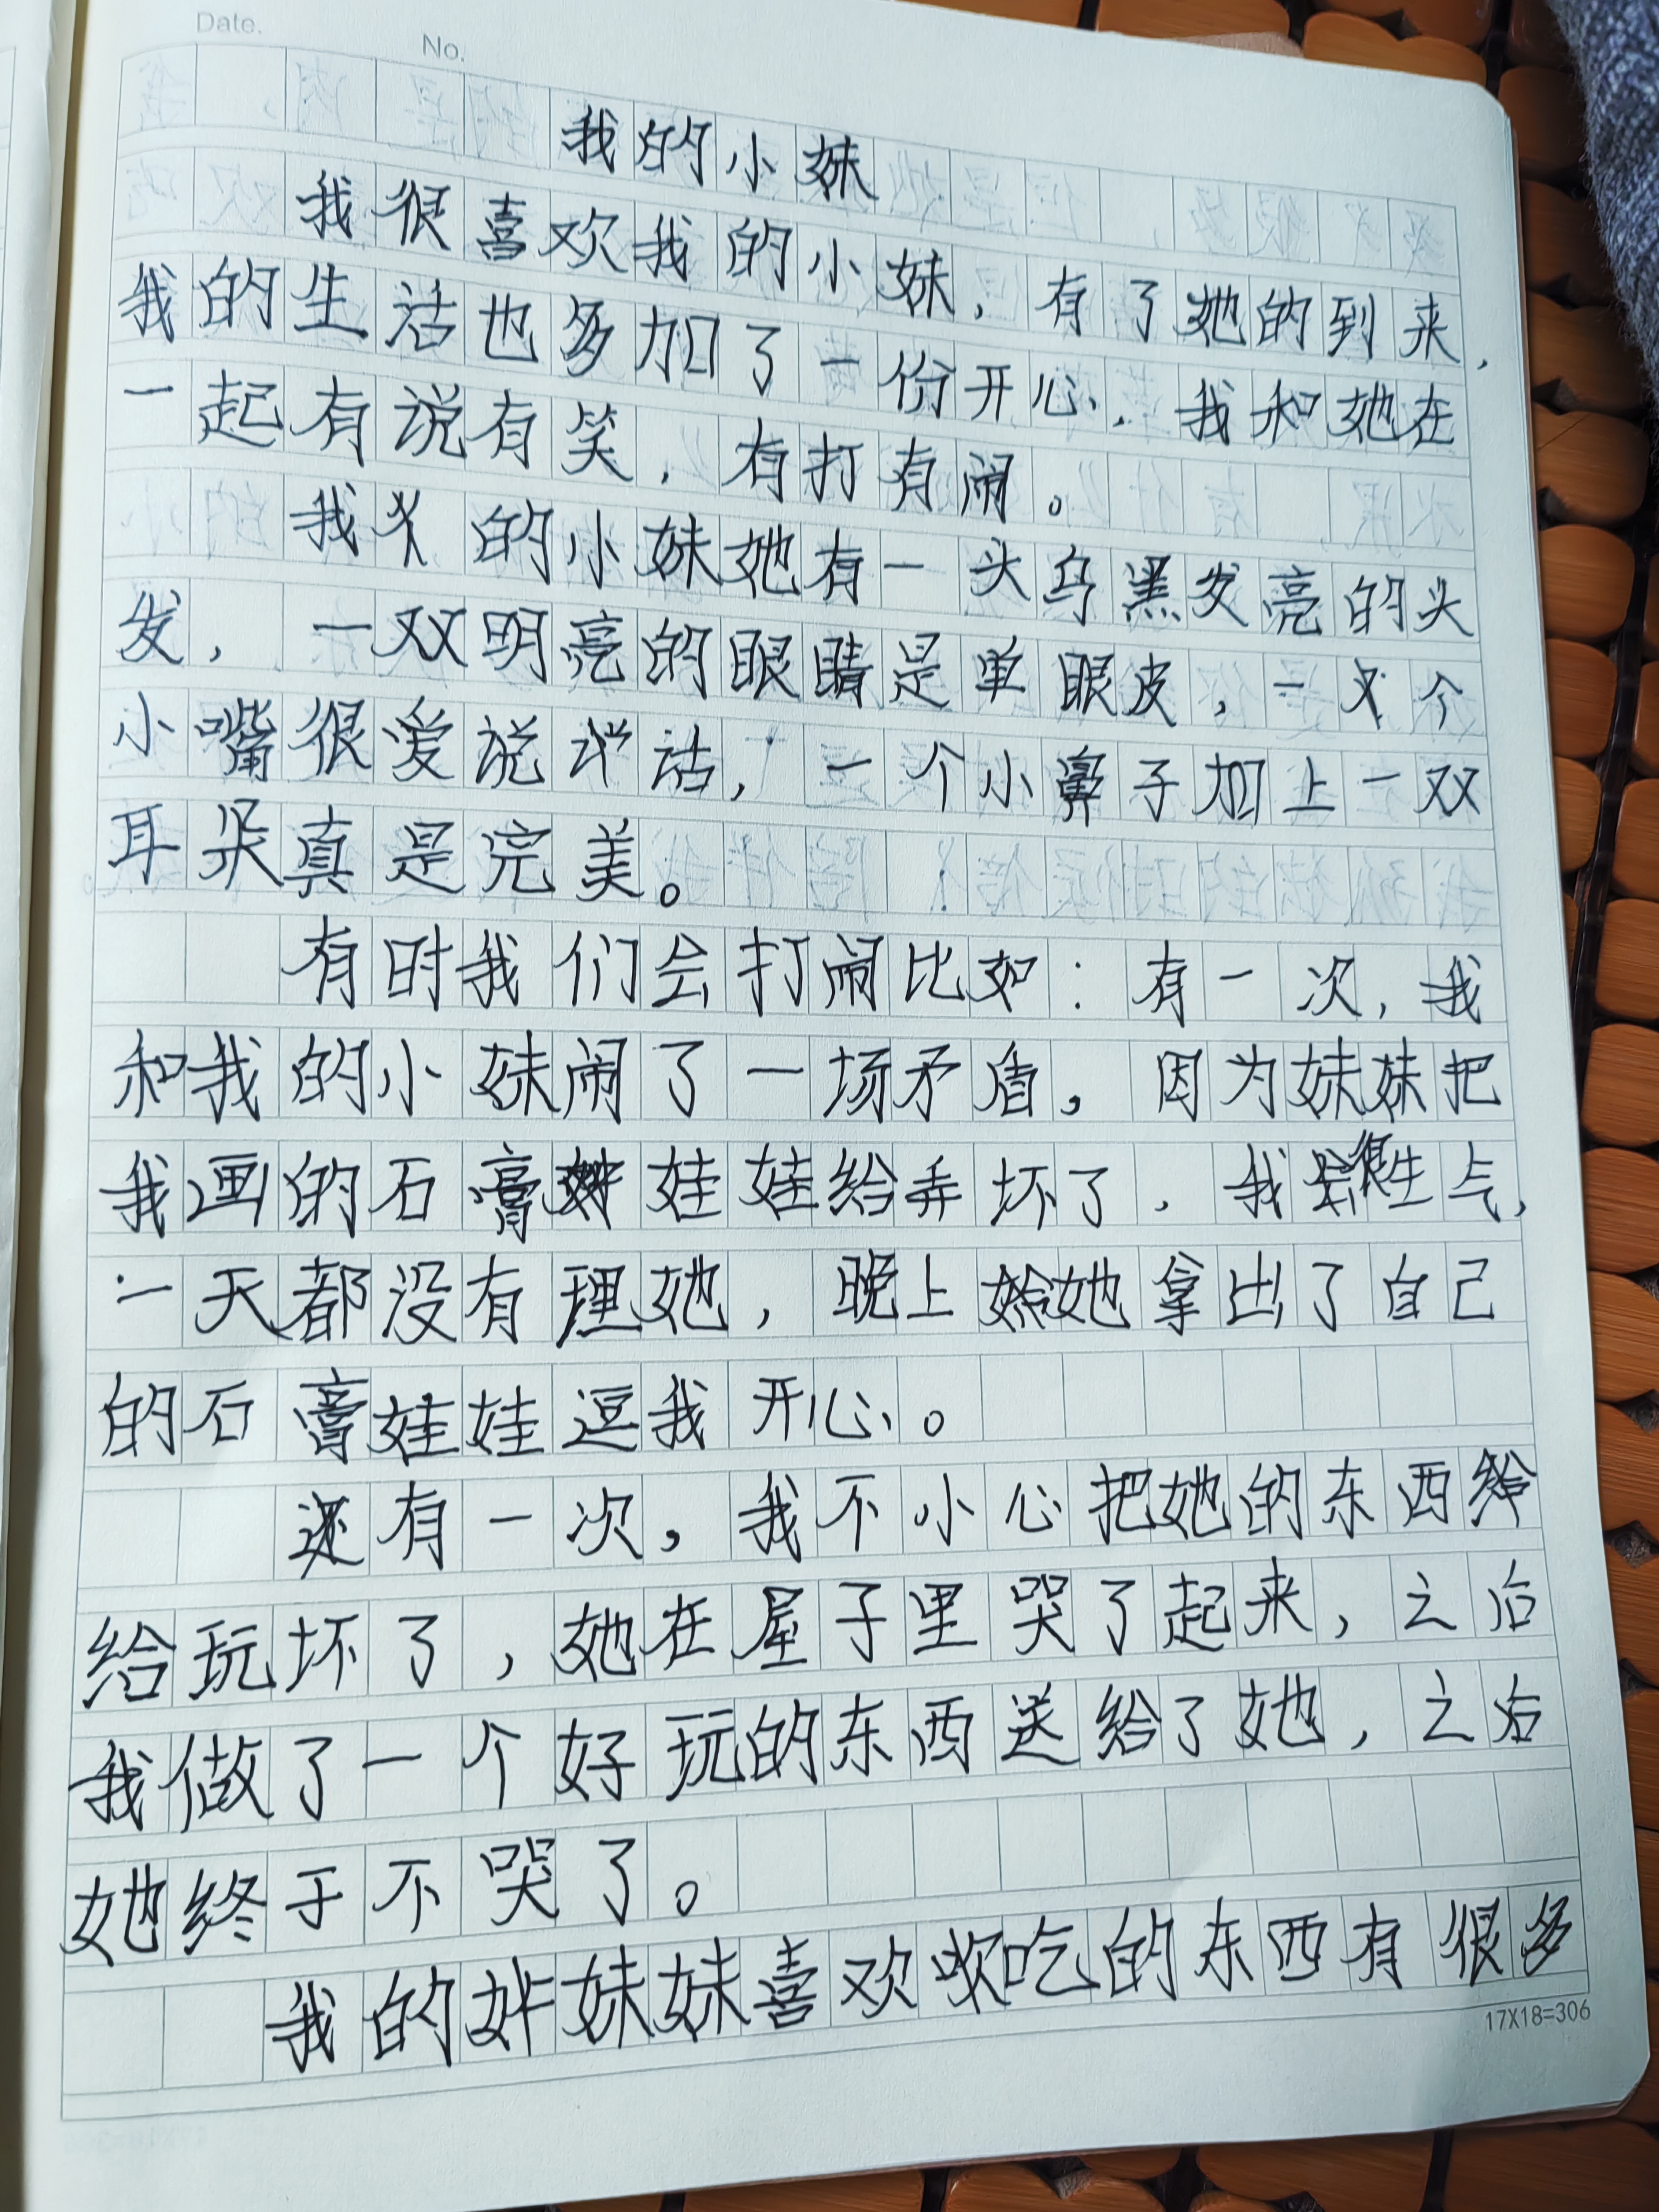 Date.
No.
我的小妹
我很喜欢我的小妹，有了她的到来，
我的生活也多加了一份开心，我和她在
一起有说有笑，有打有闹。
我的小妹她有一头乌黑发亮的头
发，一双明亮的眼睛是单眼皮，一个
小嘴很爱说话，一个小鼻子加上一双
耳朵真是完美。
有时我们会打闹比如：有一次，我
和我的小妹闹了一场矛盾，因为妹妹把
我画的石膏娃娃给弄坏了，我很生气，
一天都没有理她，晚上她拿出了自己
的石膏娃娃逗我开心。
还有一次，我不小心把她的东西
给玩坏了，她在屋子里哭了起来，之后
我做了一个好玩的东西送给了她，之后
她终于不哭了。
我的妹妹喜欢吃的东西有很多
17X18=306